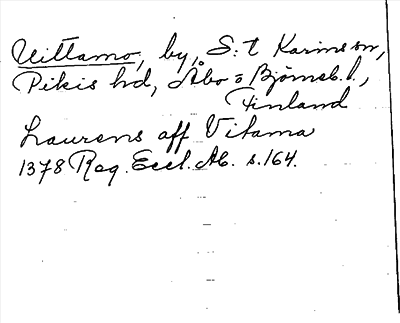 Uittamo, by, S:t Karins sn,
Pikis hd, Åbo o Björneb. l.,
Finland
Laurens aff Vitama
1378 Reg. Eccl. Ab. s. 164.